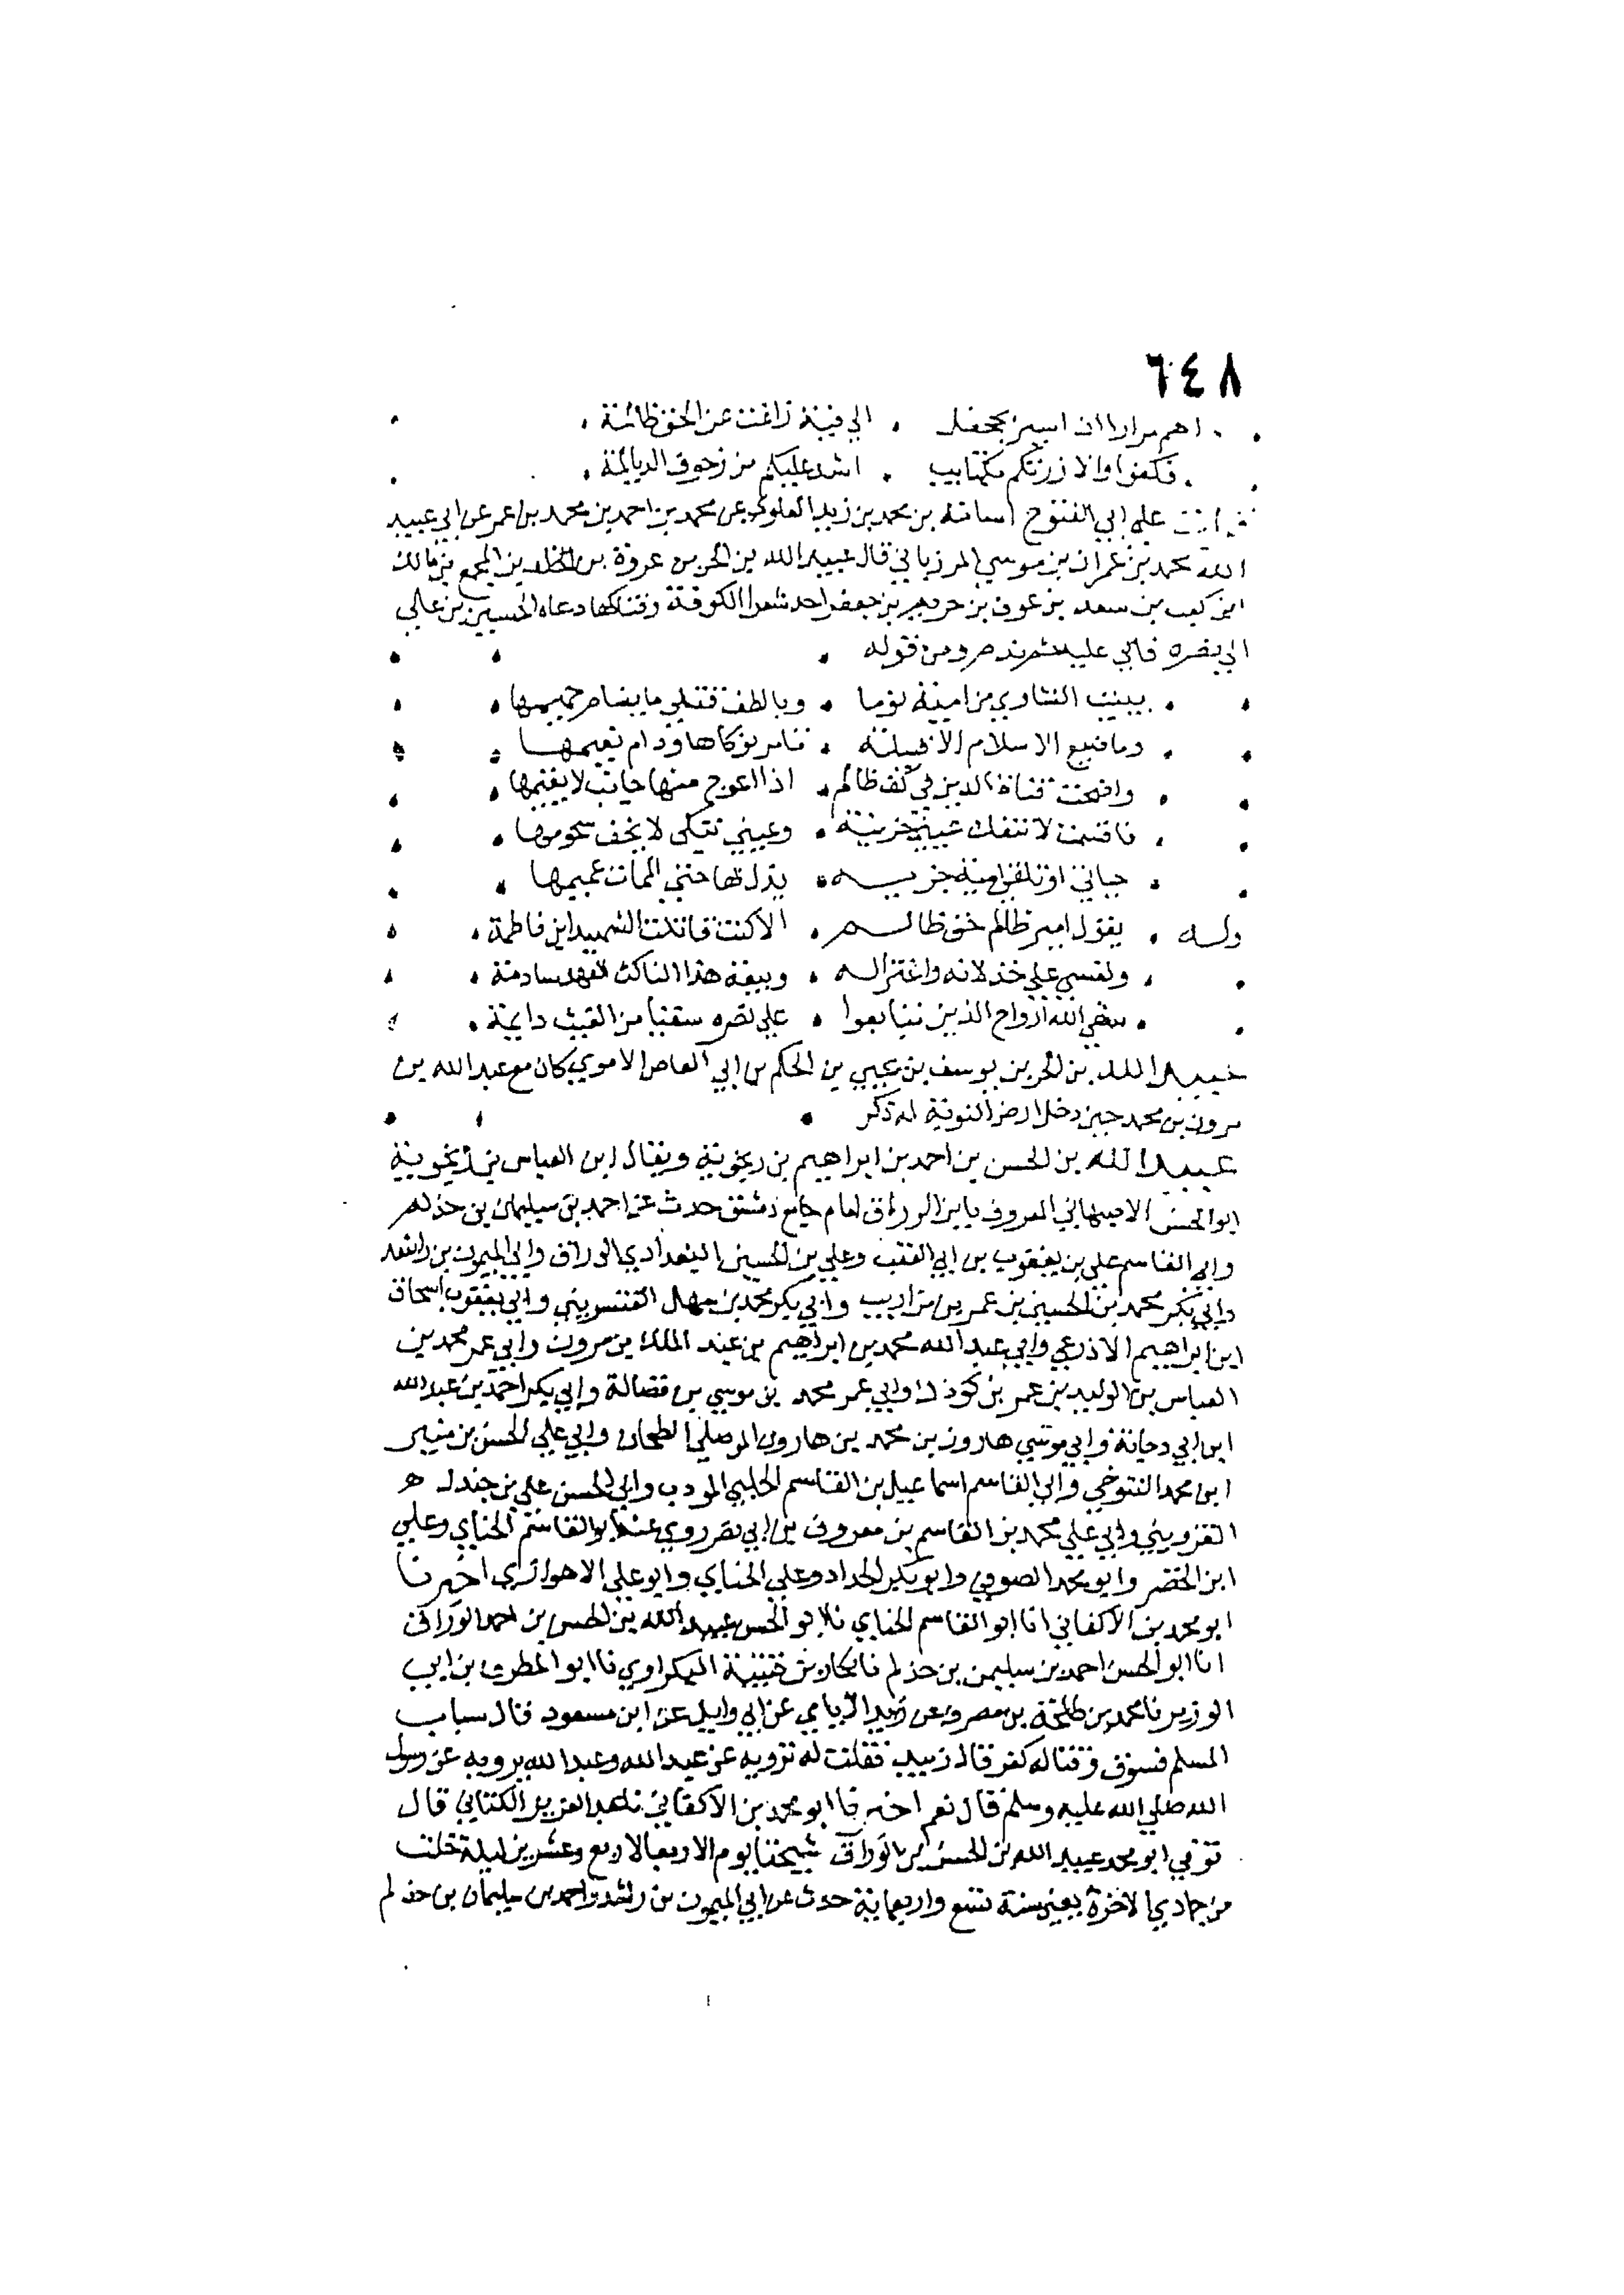 ٦٤٨
اهم مرارا ان اسير بجحفل . الي فية زاغت عن الحق ظالمة
فكفوا والا زرتكم بكتايب . اشد عليكم من زحوف الديالمة
قرات علي ابي الفتوح اسامة بن محمد بن زيد العلوي عن محمد بن احمد بن محمد بن عمر عن ابي عبيد
الله محمد بن عمران بن موسي المرزباني قال عبيد الله بن الحر بن عروة بن خالد بن المجمع بن مالك
ابن كعب بن سعد بن عوف بن حريم بن جعفر احد شعرا الكوفة وفتاكها دعاه الحسين بن علي
الي نصره فابي عليه ثم ندم ومن قوله
يبيت النشاوي من امية نوما . وبالطف قتلي ما ينام حميمها
وما ضيع الاسلام الا قبيلة . تامر نوكاها ودام نعيمها
واضحت قناة الدين في كف ظالم . اذا اعوج منها جانب لا يقيمها
فاقسمت لا تنفك عيني حزينة . وعيني تبكي لا يخف سجومها
حياتي او تلقي امية خزيه . يذل لها حتي الممات عميمها
وله . يقول امير ظالم حق ظالم . الا كنت قاتلت الشهيد ابن فاطمة
ونفسي علي خذلانه واعتزاله . وبيعة هذا الناكث العهد سادمة
سقي الله ارواح الذين تتابعوا . علي نصره سقيا من الغيث دايمة
عبيد الله بن الحر بن يوسف بن يحيي بن الحكم بن ابي العاص الاموي كان مع عبد الله بن
مرون بن محمد حين دخل ارض النوبة له ذكر
عبيد الله بن الحسن بن احمد بن ابراهيم بن زنجوية ويقال ابن العباس بن زنجوية
ابو الحسن الاصبهاني المعروف بابن الوراق امام جامع دمشق حدث عن احمد بن سليمان بن حذلم
وابي القاسم علي بن يعقوب بن ابي العقب وعلي بن الحسين البغدادي الوراق وابي الميمون بن راشد
وابي بكر محمد بن الحسين بن عمر بن مزاريب وابي بكر محمد بن سهل القنسريني وابي يعقوب اسحاق
ابن ابراهيم الاذرعي وابي عبد الله محمد بن ابراهيم بن عبد الملك بن مرون وابي عمر محمد بن
العباس بن الوليد بن عمر بن كوذك وابي عمر محمد بن موسي بن فضالة وابي بكر احمد بن عبد الله
ابن ابي دجانة وابي موسي هارون بن محمد بن هارون الموصلي الطحان وابي علي الحسن بن منير
ابن محمد التنوخي وابي القاسم اسماعيل بن القاسم الحلبي المودب وابي الحسن علي بن جندل
القزويني وابي علي محمد بن القاسم بن معروف بن ابي نصر روي عنه ابو القاسم الحناي وعلي
ابن الخضر وابو محمد الصوفي وابو بكر الحداد وعلي الحناي وابو علي الاهوازي اخبرنا
ابو محمد بن الاكفاني انا ابو القاسم الحناي نا ابو الحسن عبيد الله بن الحسن بن احمد الوراق
انا ابو الحسن احمد بن سليمن بن حذلم نا بكار بن قتيبة البكراوي نا ابو المطرف بن ابي
الوزير نا محمد بن طلحة بن مصرف عن زبيد الايامي عن ابي وايل عن ابن مسعود قال سباب
المسلم فسوق وقتاله كفر قال زبيد فقلت له ترويه عن عبد الله وعبد الله يرويه عن رسول
الله صلي الله عليه وسلم قال نعم اخبرنا ابو محمد بن الاكفاني نا عبد العزيز الكتاني قال
توفي ابو محمد عبيد الله بن الحسن بن الوراق شيخنا يوم الاربعا لاربع وعشرين ليلة خلت
من جمادي الاخرة يعني سنة تسع واربعماية حدث عن ابي الميمون بن راشد واحمد بن سليمان بن حذلم